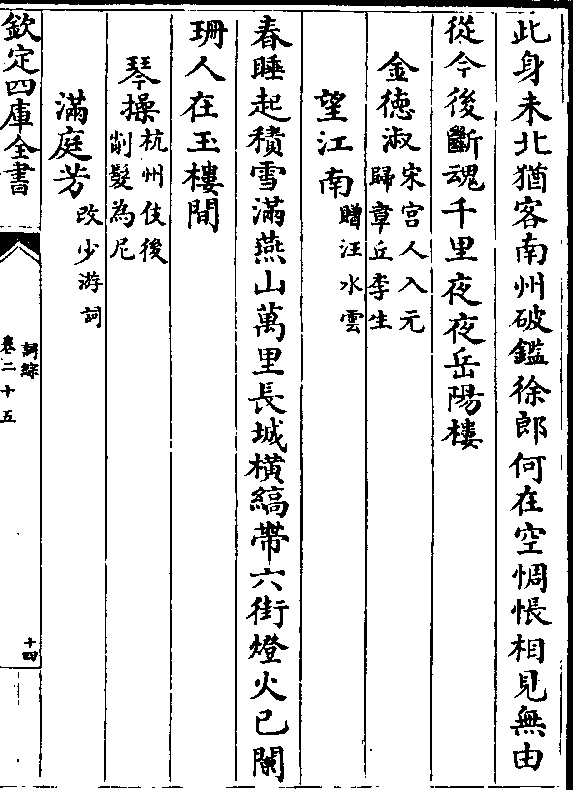 此身未北猶客南州破鑑徐郎何在空惆悵相見無由
從今後斷魂千里夜夜岳陽樓
金德淑宋宫人入元歸章丘李生
望江南贈汪水雲
春睡起積雪滿燕山萬里長城横縞帶六街燈火已闌
珊人在玉樓間
琴操杭州伎後削髮為尼
滿庭芳改少游詞
欽定四庫全書
詞綜
卷二十五
十四